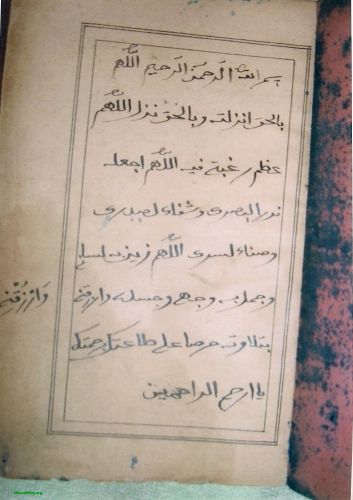 بسم الله الرحمن الرحيم اللهم
بالحق انزلته وبالحق نزل اللهم
عظم رغبة فيه اللهم اجعله
نور البصرى وشفاء لصدرى
وضياء لسرى اللهم زين به لسانى
وجمل به وجهى وجسدى وارزقنى
وارزقنى
بتلاوته حرصا على طاعتك برحمتك
يا ارحم الراحمين